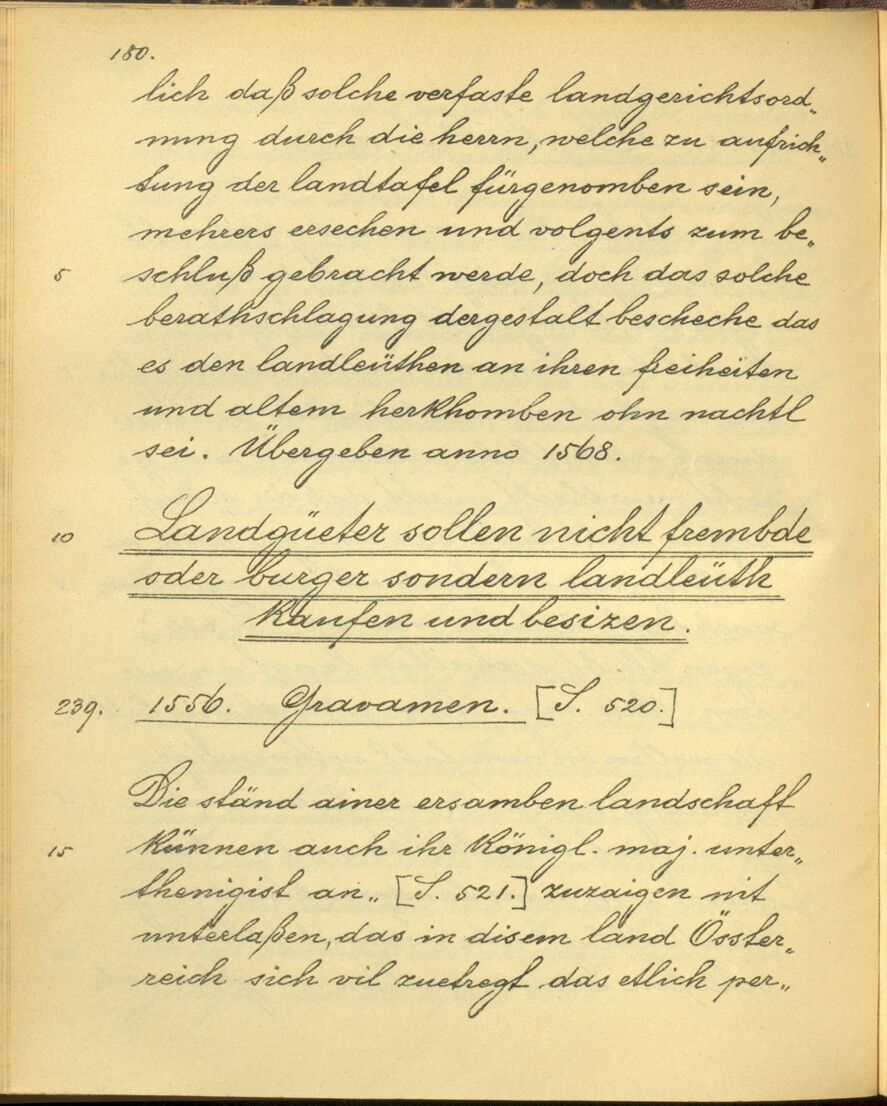 180.
lich daß solche verfaste landgerichtsord„
nung durch die herrn, welche zu aufrich„
tung der landtafel fürgenomben sein,
mehrers ersechen und volgents zum be„
5 schluß gebracht werde, doch das solche
berathschlagung dergestalt bescheche das
es den landleüthen an ihren freiheiten
und altem herkhomben ohn nachtl
sei. Übergeben anno 1568.
10 Landgüeter sollen nicht frembde
oder burger sondern landleüth
kaufen und besizen.
239. 1556. Gravamen. [S. 520.]
Die ständ ainer ersamben landschaft
15 künnen auch ihr königl. maj. unter„
thenigist an„ [S. 521.] zuzaigen nit
unterlaßen, das in disem landÖsster„
reich sich vil zuetregt das etlich per„